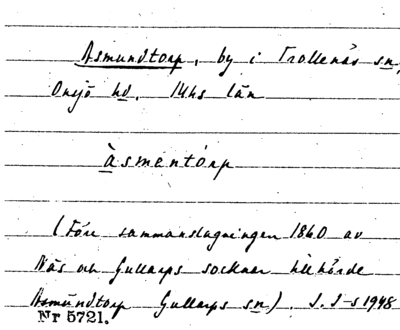 Asmundtorp, by i Trollenäs sn,
Onsjö hd. Mhs län
àsmentórp
(Före sammanslagningen 1860 av
Näs och Gullarps socknar tillhörde
Asmundtorp Gullarps sn). S. I-s 1948
Nr 5721.